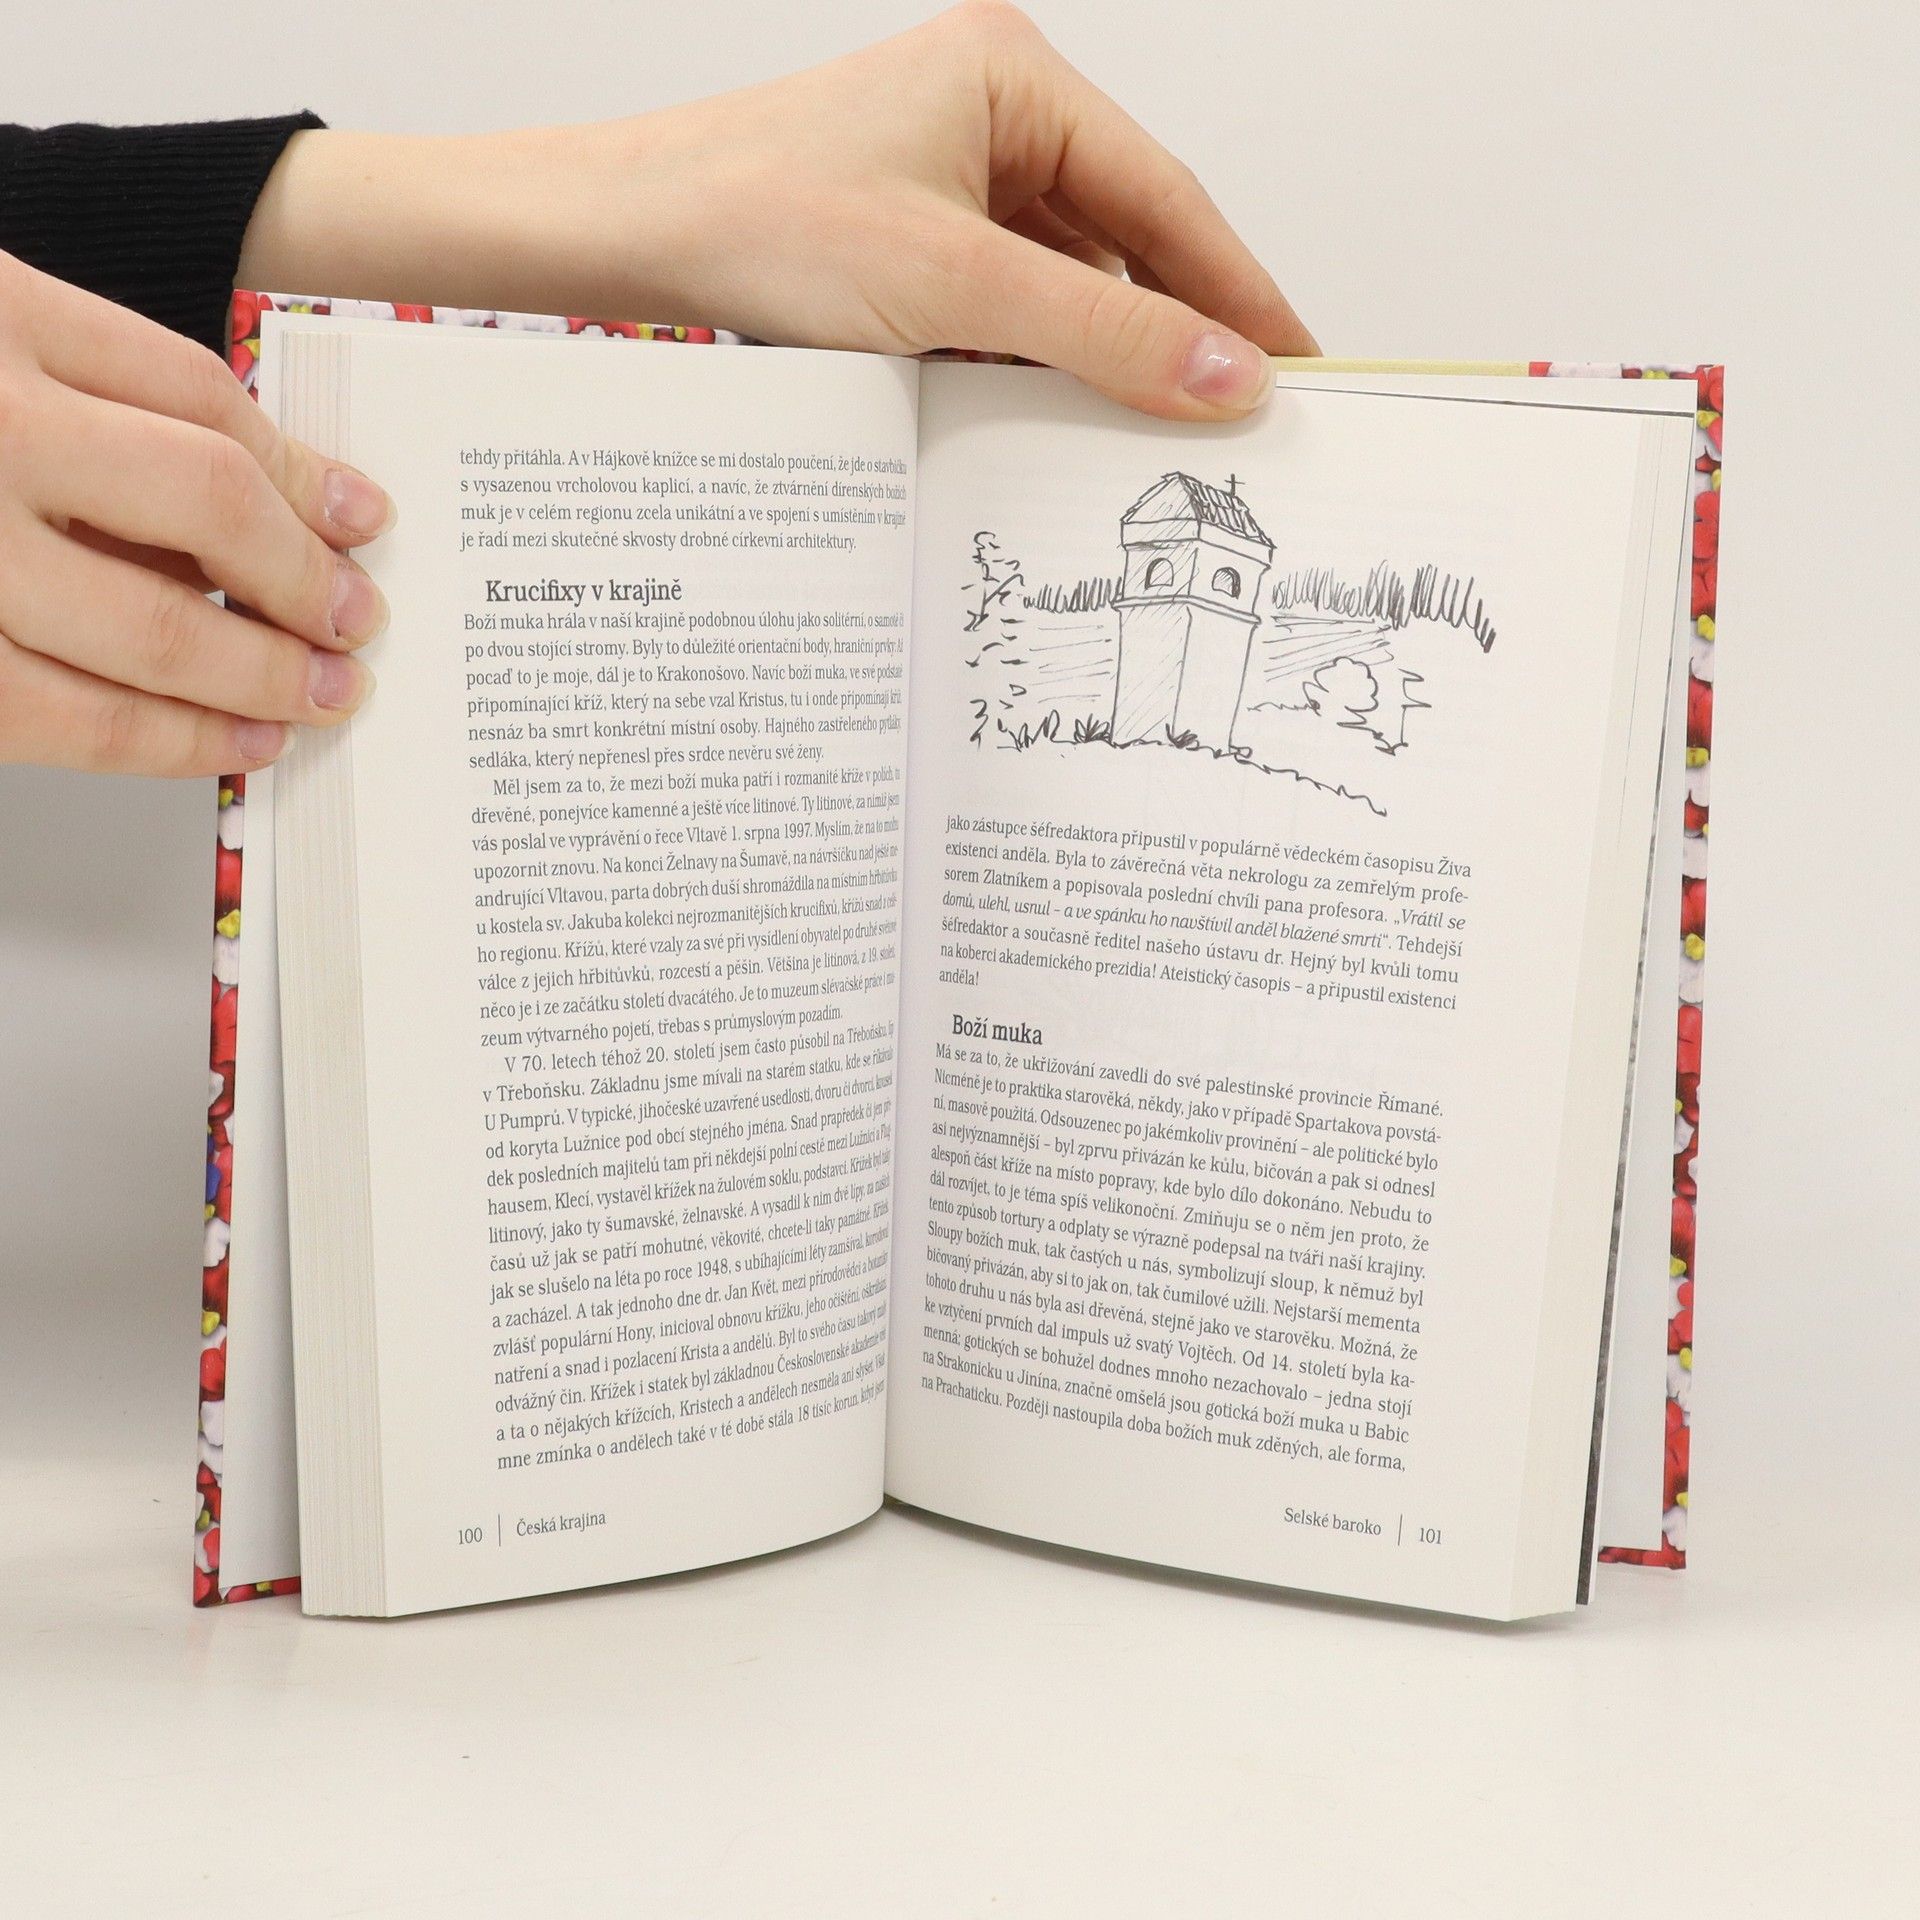 tehdy přitáhla. A v Hájkově knížce se mi dostalo poučení, že jde o stavbičku
s vysazenou vrcholovou kaplicí, a navíc, že ztvárnění dírenských božích
muk je v celém regionu zcela unikátní a ve spojení s umístěním v krajině
je řadí mezi skutečné skvosty drobné církevní architektury.
Krucifixy v krajině
Boží muka hrála v naší krajině podobnou úlohu jako solitérní, o samotě či
po dvou stojící stromy. Byly to důležité orientační body, hraniční prvky: Až
pocaď to je moje, dál je to Krakonošovo. Navíc boží muka, ve své podstatě
připomínající kříž, který na sebe vzal Kristus, tu i onde připomínají kříž,
nesnáz ba smrt konkrétní místní osoby. Hajného zastřeleného pytláky,
sedláka, který nepřenesl přes srdce nevěru své ženy.
Měl jsem za to, že mezi boží muka patří i rozmanité kříže v polích, tu
dřevěné, ponejvíce kamenné a ještě více litinové. Ty litinové, za nimiž jsem
vás poslal ve vyprávění o řece Vltavě 1. srpna 1997. Myslím, že na to mohu
upozornit znovu. Na konci Želnavy na Šumavě, na návršíčku nad ještě me-
andrující Vltavou, parta dobrých duší shromáždila na místním hřbitůvku
u kostela sv. Jakuba kolekci nejrozmanitějších krucifixů, křížů snad z celé-
ho regionu. Křížů, které vzaly za své při vysídlení obyvatel po druhé světové
válce z jejich hřbitůvků, rozcestí a pěšin. Většina je litinová, z 19. století,
něco je i ze začátku století dvacátého. Je to muzeum slévačské práce i mu-
zeum výtvarného pojetí, třebas s průmyslovým pozadím.
V 70. letech téhož 20. století jsem často působil na Třeboňsku, líp
v Třeboňsku. Základnu jsme mívali na starém statku, kde se říkávalo
U Pumprů. V typické, jihočeské uzavřené usedlosti, dvoru či dvorci, kousek
od koryta Lužnice pod obcí stejného jména. Snad prapředek či jen pře-
dek posledních majitelů tam při někdejší polní cestě mezi Lužnicí a Flug-
hausem, Klecí, vystavěl křížek na žulovém soklu, podstavci. Křížek byl taky
litinový, jako ty šumavské, želnavské. A vysadil k nim dvě lípy, za našich
časů už jak se patří mohutné, věkovité, chcete-li taky památné. Křížek,
jak se slušelo na léta po roce 1948, s ubíhajícími léty zamšíval, korodoval
a zacházel. A tak jednoho dne dr. Jan Květ, mezi přírodovědci a botaniky
zvlášť populární Hony, inicioval obnovu křížku, jeho očištění, oškrábání,
natření a snad i pozlacení Krista a andělů. Byl to svého času takový malý
odvážný čin. Křížek i statek byl základnou Československé akademie věd
a ta o nějakých křížcích, Kristech a andělech nesměla ani slyšet. Však
mne zmínka o andělech také v té době stála 18 tisíc korun, když jsem
100 | Česká krajina
jako zástupce šéfredaktora připustil v populárně vědeckém časopisu Živa
existenci anděla. Byla to závěrečná věta nekrologu za zemřelým profe-
sorem Zlatníkem a popisovala poslední chvíli pana profesora. „Vrátil se
domů, ulehl, usnul – a ve spánku ho navštívil anděl blažené smrti“. Tehdejší
šéfredaktor a současně ředitel našeho ústavu dr. Hejný byl kvůli tomu
na koberci akademického prezidia! Ateistický časopis – a připustil existenci
anděla!
Boží muka
Má se za to, že ukřižování zavedli do své palestinské provincie Římané.
Nicméně je to praktika starověká, někdy, jako v případě Spartakova povstá-
ní, masově použitá. Odsouzenec po jakémkoliv provinění – ale politické bylo
asi nejvýznamnější – byl zprvu přivázán ke kůlu, bičován a pak si odnesl
alespoň část kříže na místo popravy, kde bylo dílo dokonáno. Nebudu to
dál rozvíjet, to je téma spíš velikonoční. Zmiňuju se o něm jen proto, že
tento způsob tortury a odplaty se výrazně podepsal na tváři naší krajiny.
Sloupy božích muk, tak častých u nás, symbolizují sloup, k němuž byl
bičovaný přivázán, aby si to jak on, tak čumilové užili. Nejstarší mementa
tohoto druhu u nás byla asi dřevěná, stejně jako ve starověku. Možná, že
ke vztyčení prvních dal impuls už svatý Vojtěch. Od 14. století byla ka-
menná; gotických se bohužel dodnes mnoho nezachovalo – jedna stojí
na Strakonicku u Jinína, značně omšelá jsou gotická boží muka u Babic
na Prachaticku. Později nastoupila doba božích muk zděných, ale forma,
Selské baroko | 101